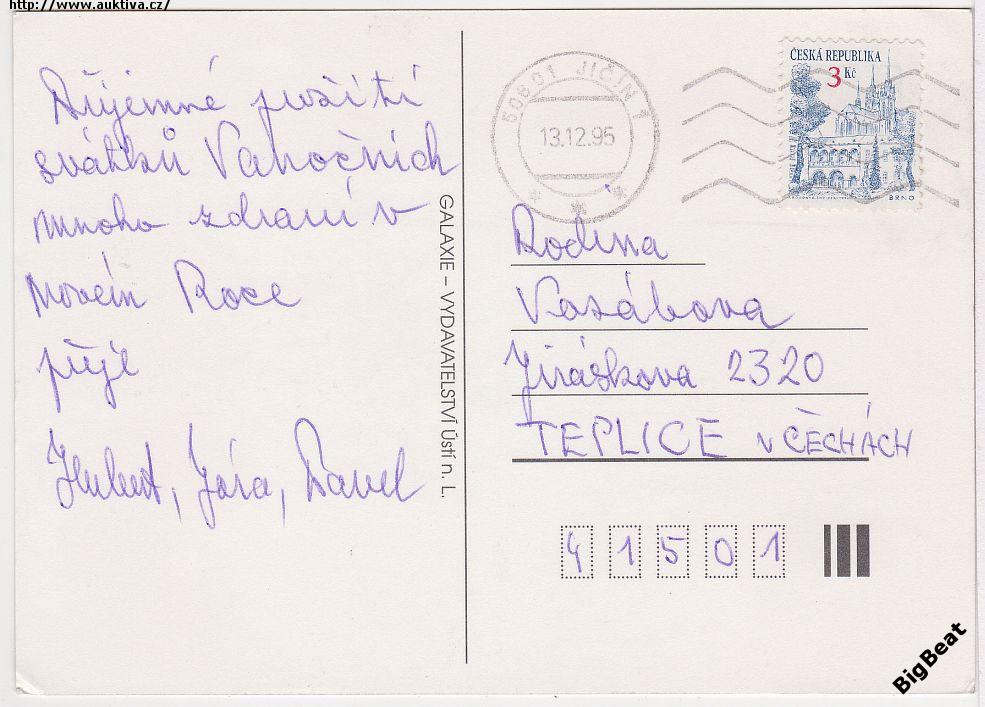 http://www.auktiva.cz/
Příjemné prožití
svátků Vánočních
mnoho zdraví v
Novém Roce
přeje
Hubert, Jára, Pavel
GALAXIE – VYDAVATELSTVÍ Ústí n. L.
50601 JIČÍN 1
13.12.95
ČESKÁ REPUBLIKA
3 Kč
BRNO
Rodina
Vosábova
Jiráskova 2320
TEPLICE v ČECHÁCH
41501
BigBeat